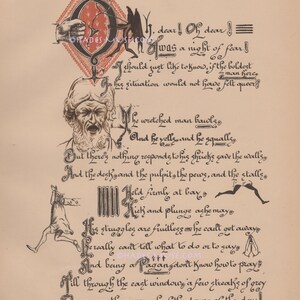 Oh, dear! Oh dear!
It was a night of fear!
I should just like to know, if the boldest man here,
In his situation, would not have felt queer!
The wretched man bawls,
And he yells, and he squalls,
But there's nothing responds to his shrieks save the walls,
And the desk, and the pulpit, the pews, and the stalls.
Held firmly at bay,
Kick and plunge as he may,
His struggles are fruitless—he can't get away,
He really can't tell what to do or to say,
And being a Pagan, don't know how to pray;
Till through the east window, a few streaks of grey